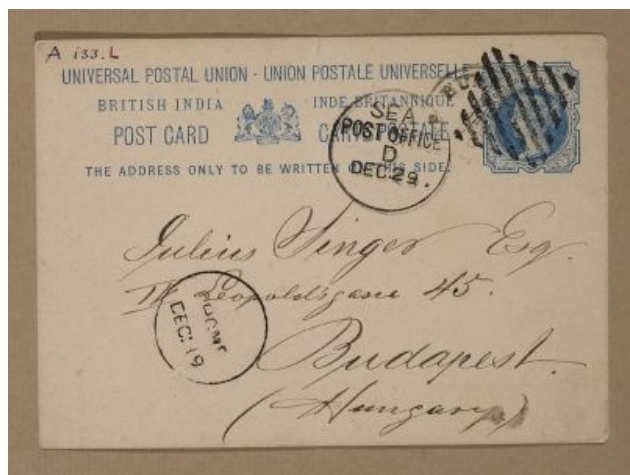 A i33.L
UNIVERSAL POSTAL UNION · UNION POSTALE UNIVERSELLE
BRITISH INDIA INDE BRITANNIQUE
POST CARD CARTE POSTALE
THE ADDRESS ONLY TO BE WRITTEN ON THIS SIDE.
SEA
POST OFFICE
D
DEC.29.
Julius Singer Esq.
Leopoldsgasse 45.
DEC.19
Budapest.
(Hungary)